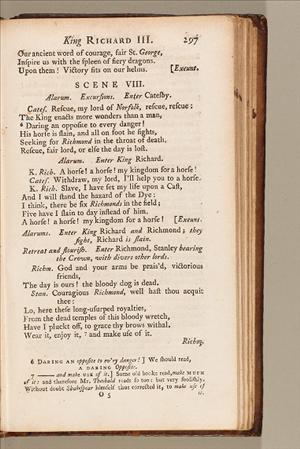 King RICHARD III. 297
Our ancient word of courage, fair St. George,
Inspire us with the spleen of fiery dragons.
Upon them! Victory sits on our helms. [Exeunt.
SCENE VIII.
Alarum. Excursions. Enter Catesby.
Cates. Rescue, my lord of Norfolk, rescue, rescue:
The King enacts more wonders than a man,
6 Daring an opposite to every danger!
His horse is slain, and all on foot he fights,
Seeking for Richmond in the throat of death.
Rescue, fair lord, or else the day is lost.
Alarum. Enter King Richard.
K. Rich. A horse! a horse! my kingdom for a horse!
Cates. Withdraw, my lord, I'll help you to a horse.
K. Rich. Slave, I have set my life upon a Cast,
And I will stand the hazard of the Dye:
I think, there be six Richmonds in the field;
Five have I slain to day instead of him.
A horse! a horse! my kingdom for a horse! [Exeunt.
Alarums. Enter King Richard and Richmond; they
fight, Richard is slain.
Retreat and flourish. Enter Richmond, Stanley bearing
the Crown, with divers other lords.
Richm. God and your arms be prais'd, victorious
friends,
The day is ours! the bloody dog is dead.
Stan. Couragious Richmond, well hast thou acquit
thee:
Lo, here these long-usurped royalties,
From the dead temples of this bloody wretch,
Have I pluckt off, to grace thy brows withal.
Wear it, enjoy it, 7 and make use of it.
Richm.
6 DARING an opposite to ev'ry danger!] We should read,
A DARING Opposite.
7 —— and make USE of it.] Some old books read, make MUCH
of it: and therefore Mr. Theobald reads so too: but very foolishly.
Without doubt Shakespear himself thus corrected it, to make use of
O 5 it.